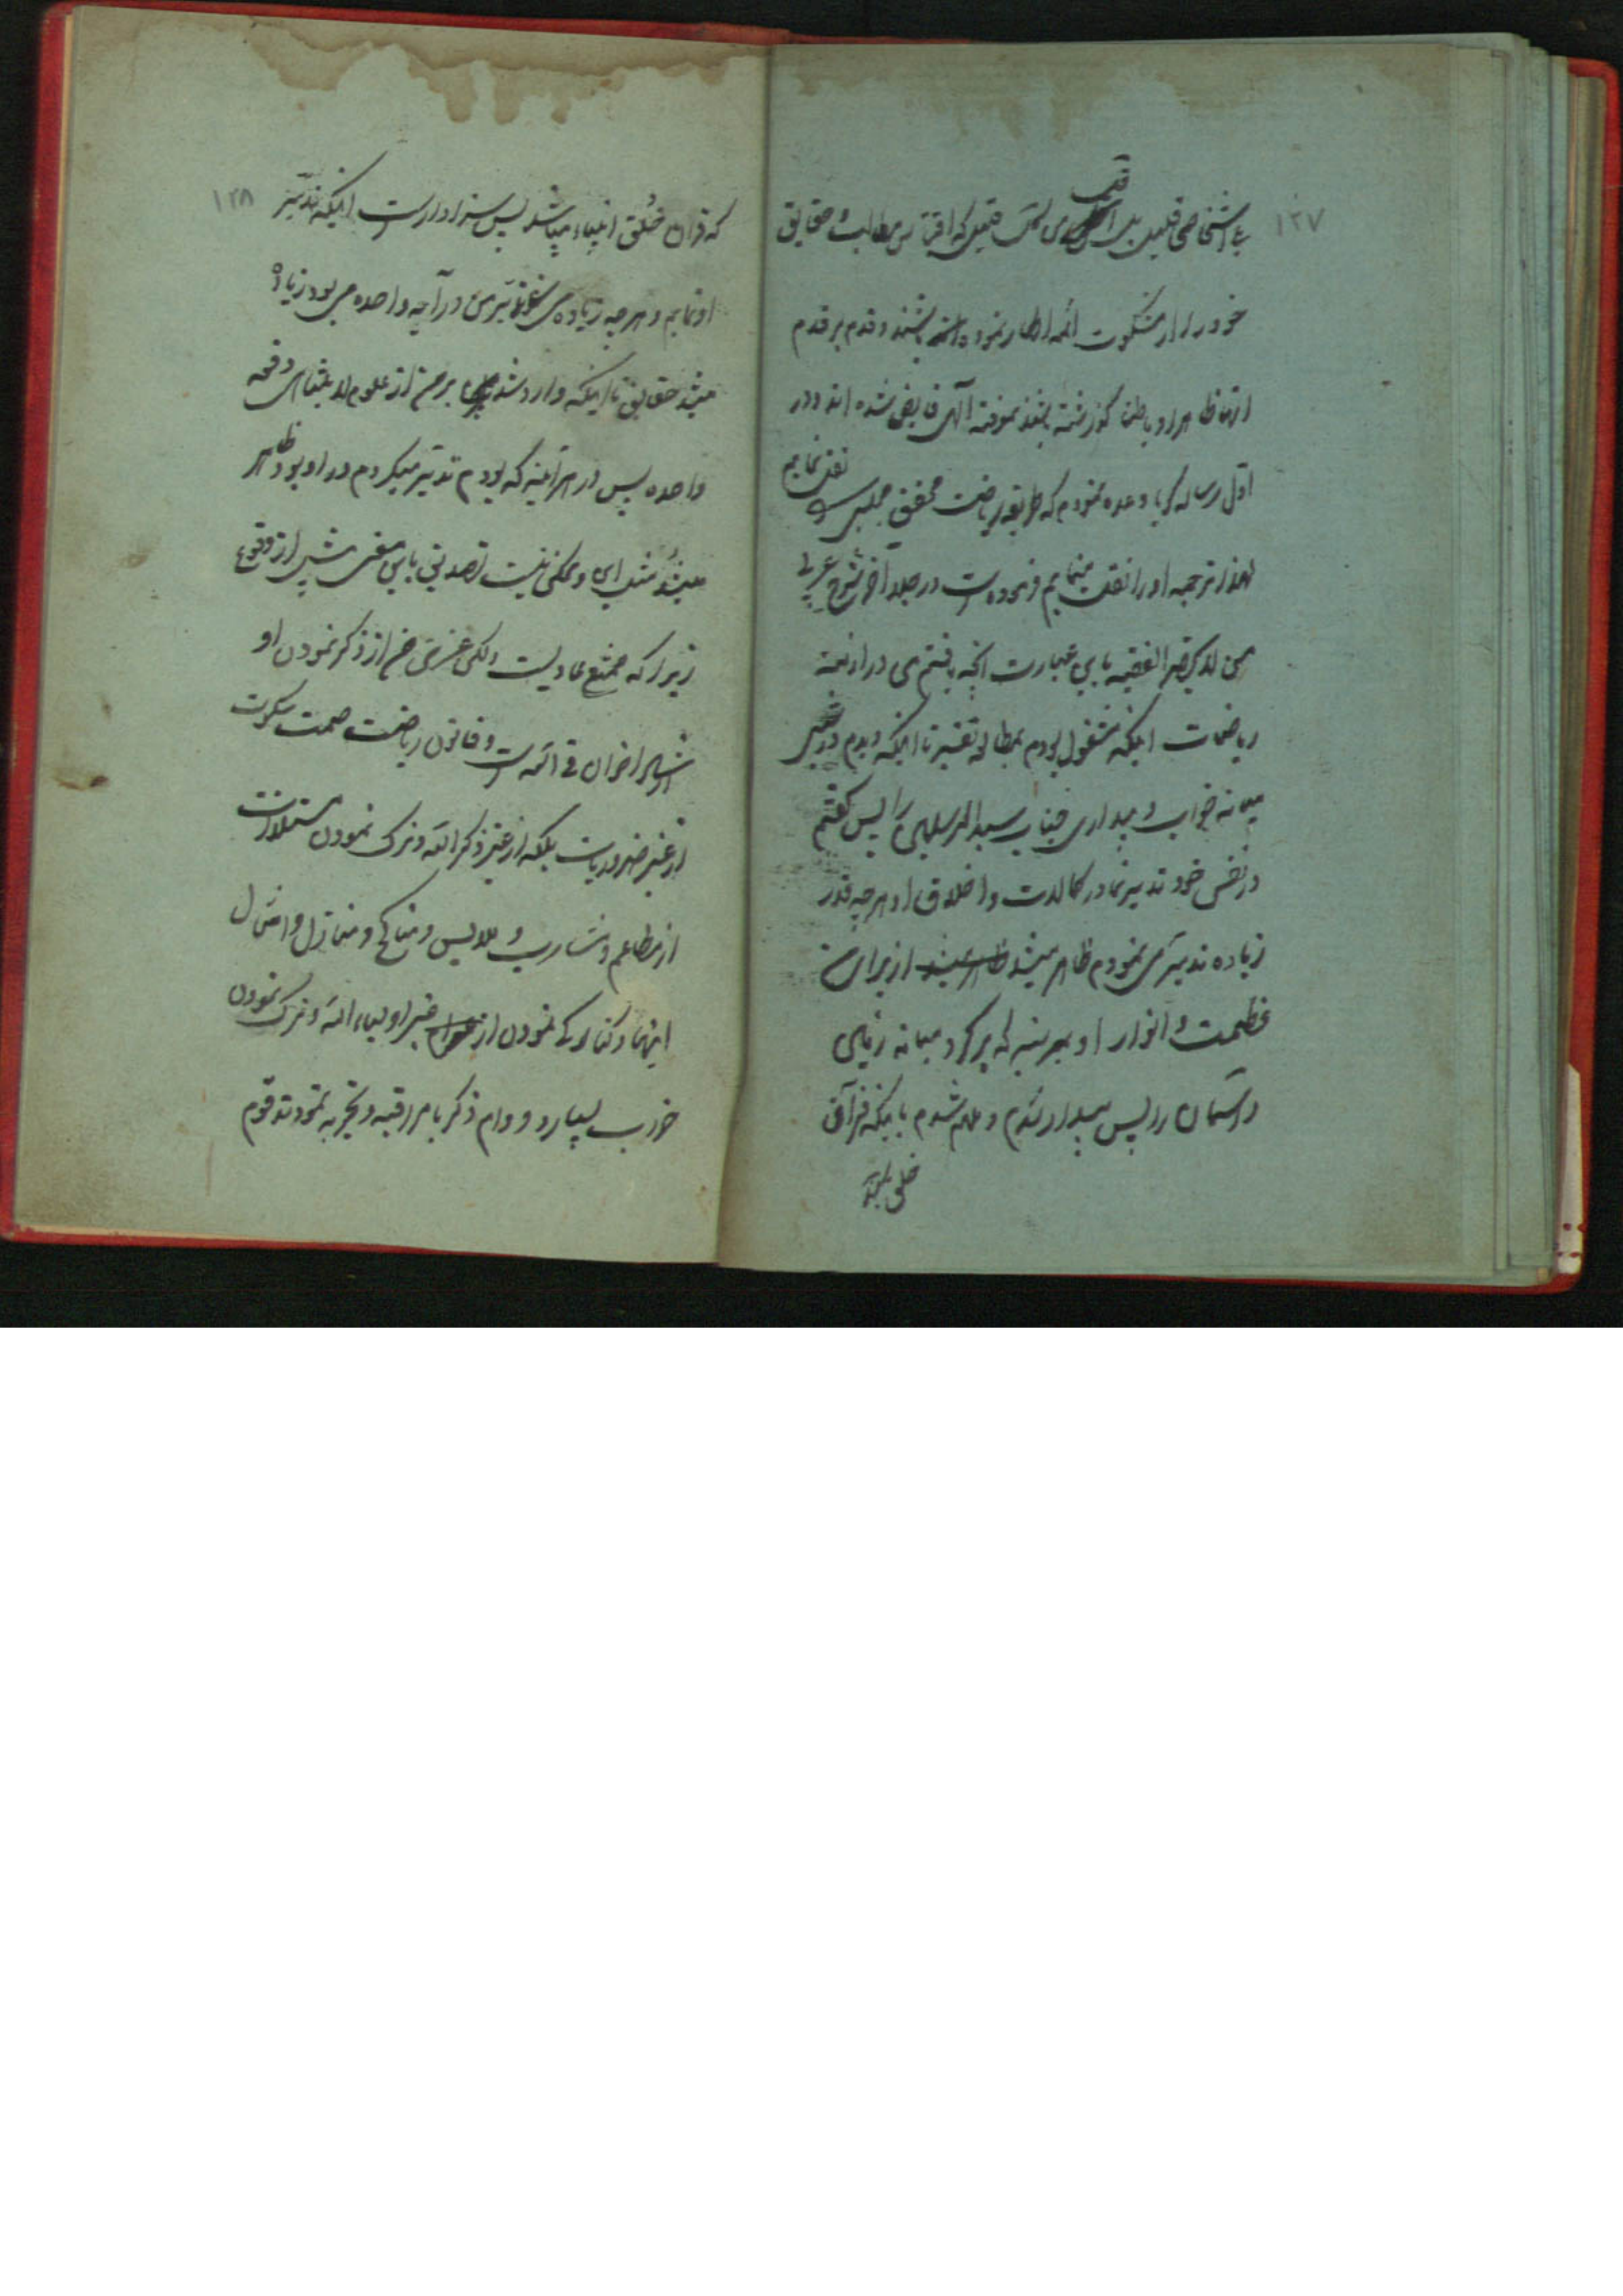 ١٢٧
اشخاص قلیل که اقتباس مطالب و حقایق
خود را از مشکوت ائمه اطهار نموده باشند و قدم بر قدم
انها ظاهرا و باطنا گذشته باشند بمعرفة الهی فایض شده اند و در
اول رساله وعده نمودم که طریقه ریاضت محقق مجلسی را نقل نمایم
لهذا ترجمه او را نقل مینمایم فرموده است در جلد آخر شرح عربی
من لا یحضر الفقیه باین عبارت انچه یافتم من در ازمنه
ریاضات اینکه مشغول بودم بمطالعه تفسیر تا اینکه دیدم در
میانه خواب و بیداری جناب سید المرسلین را پس گفتم
در نفس خود تدبیر نما در کمالات و اخلاق او هر چه قدر
زیاده تدبیر می نمودم ظاهر میشد از برای من
عظمت و انوار او بمرتبه که پر کرد میانه زمین
و آسمان را پس بیدار شدم و ملهم شدم باینکه قرآن
خلق
١٢٨
که قران خلق انبیاء میباشد پس سزاوار است اینکه تدبیر
او نمایم و هر چه زیاده می شد تدبر من در آیه واحده می بود زیاده
میشد حقایق تا اینکه وارد شد بر من از علوم لا یتناهی دفعه
واحده پس در هر آیه که بودم تدبیر میکردم در او بود ظاهر
میشد مثل این و ممکن نیست تصدیق باین معنی پیش از وقوع
زیرا که ممتنع عادیست لکن غرض من از ذکر نمودن او
ارشاد اخوان فی الله است و قانون ریاضت صمت سکوت
از غیر ضروریات بلکه از غیر ذکر الله و ترک نمودن مستلذات
از مطاعم و مشارب و ملابس و مناکح و منازل و امثال
اینها و کناره نمودن از غیر اولیاء الله و ترک نمودن
خواب بسیار و دوام ذکر با مراقبه و تجربه نمودند قوم